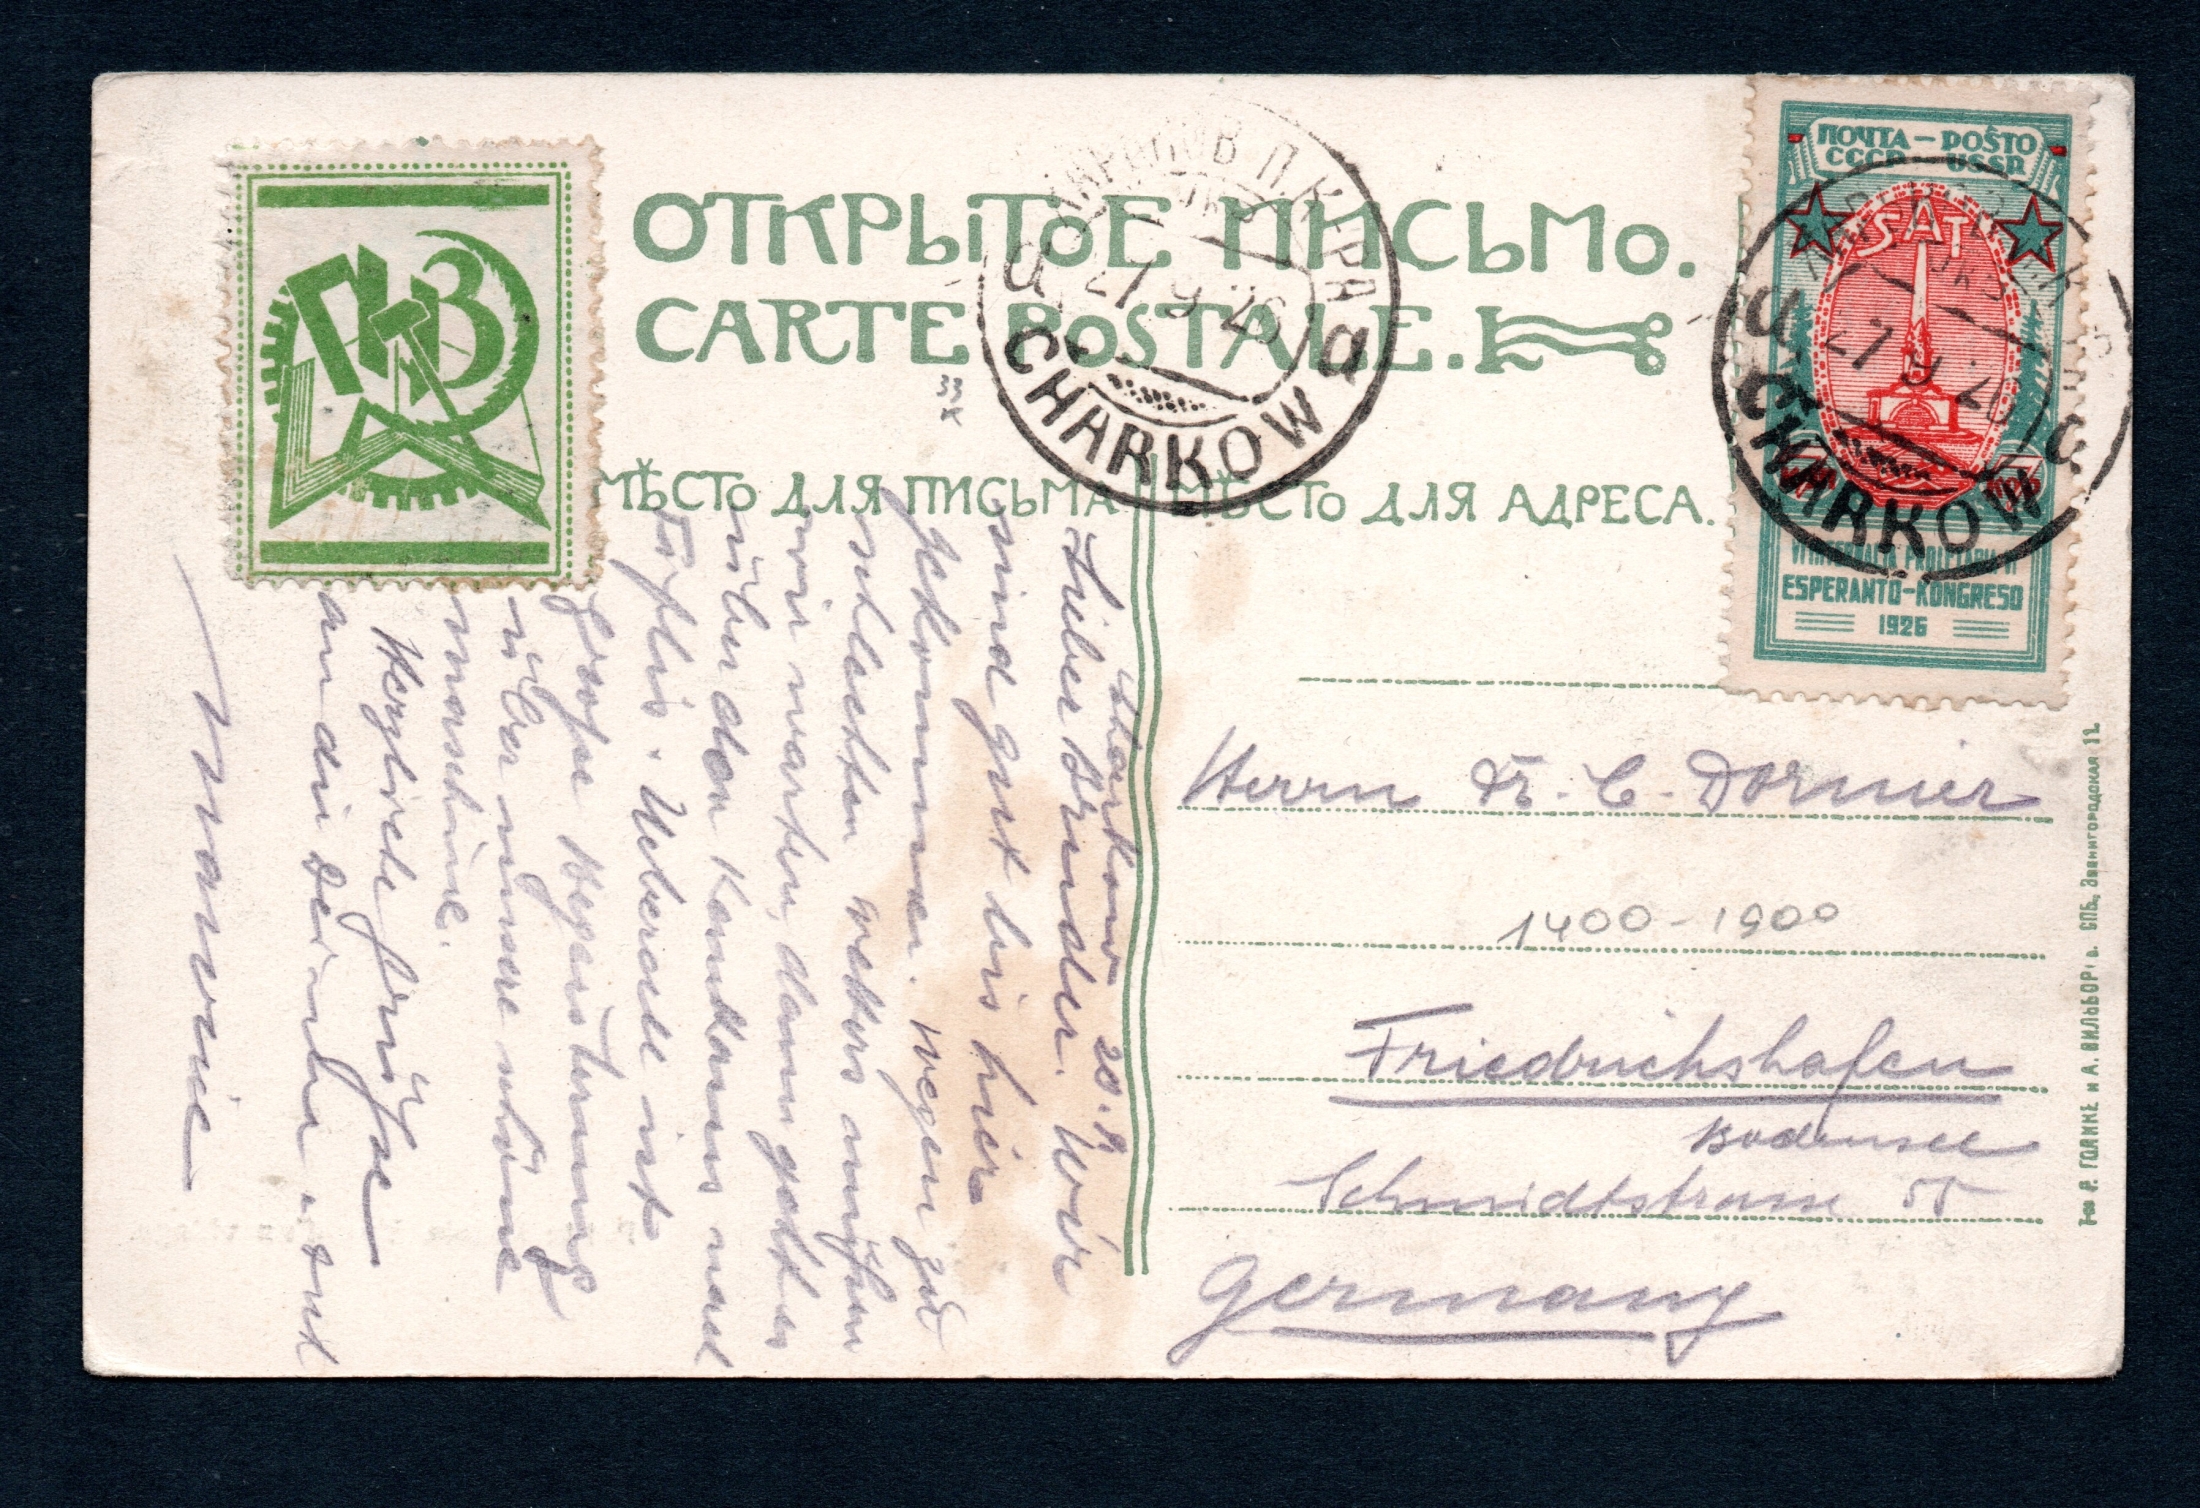 ОТКРЫТОЕ ПИСЬМО.
CARTE POSTALE.
МѢСТО ДЛЯ ПИСЬМА
МѢСТО ДЛЯ АДРЕСА.
ПКЗ
ПОЧТА – POŜTO
СССР USSR
SAT
ESPERANTO-KONGRESO
1926
a 27 9 26 a
CHARKOW
27 9 26
CHARKOW
33
Charkow 20.9.
Lieber Bruder. Wir
sind gut bis hier
gekommen. Wegen zu
schlechten Wetters müssen
wir warten, dann geht es
über den Kaukasus nach
Tiflis. Überall ist
große Begeisterung
über unsere schöne
maschine.
Herzliche Grüße
an die Deinen und
Herrn Dr. C. Dornier
1400-1900
Friedrichshafen
Bodensee
Schmidtstrasse 55
Germany
Т-во Р. ГОЛИКЕ и А. ВИЛЬБОРГ. СПБ., Звенигородская 11.